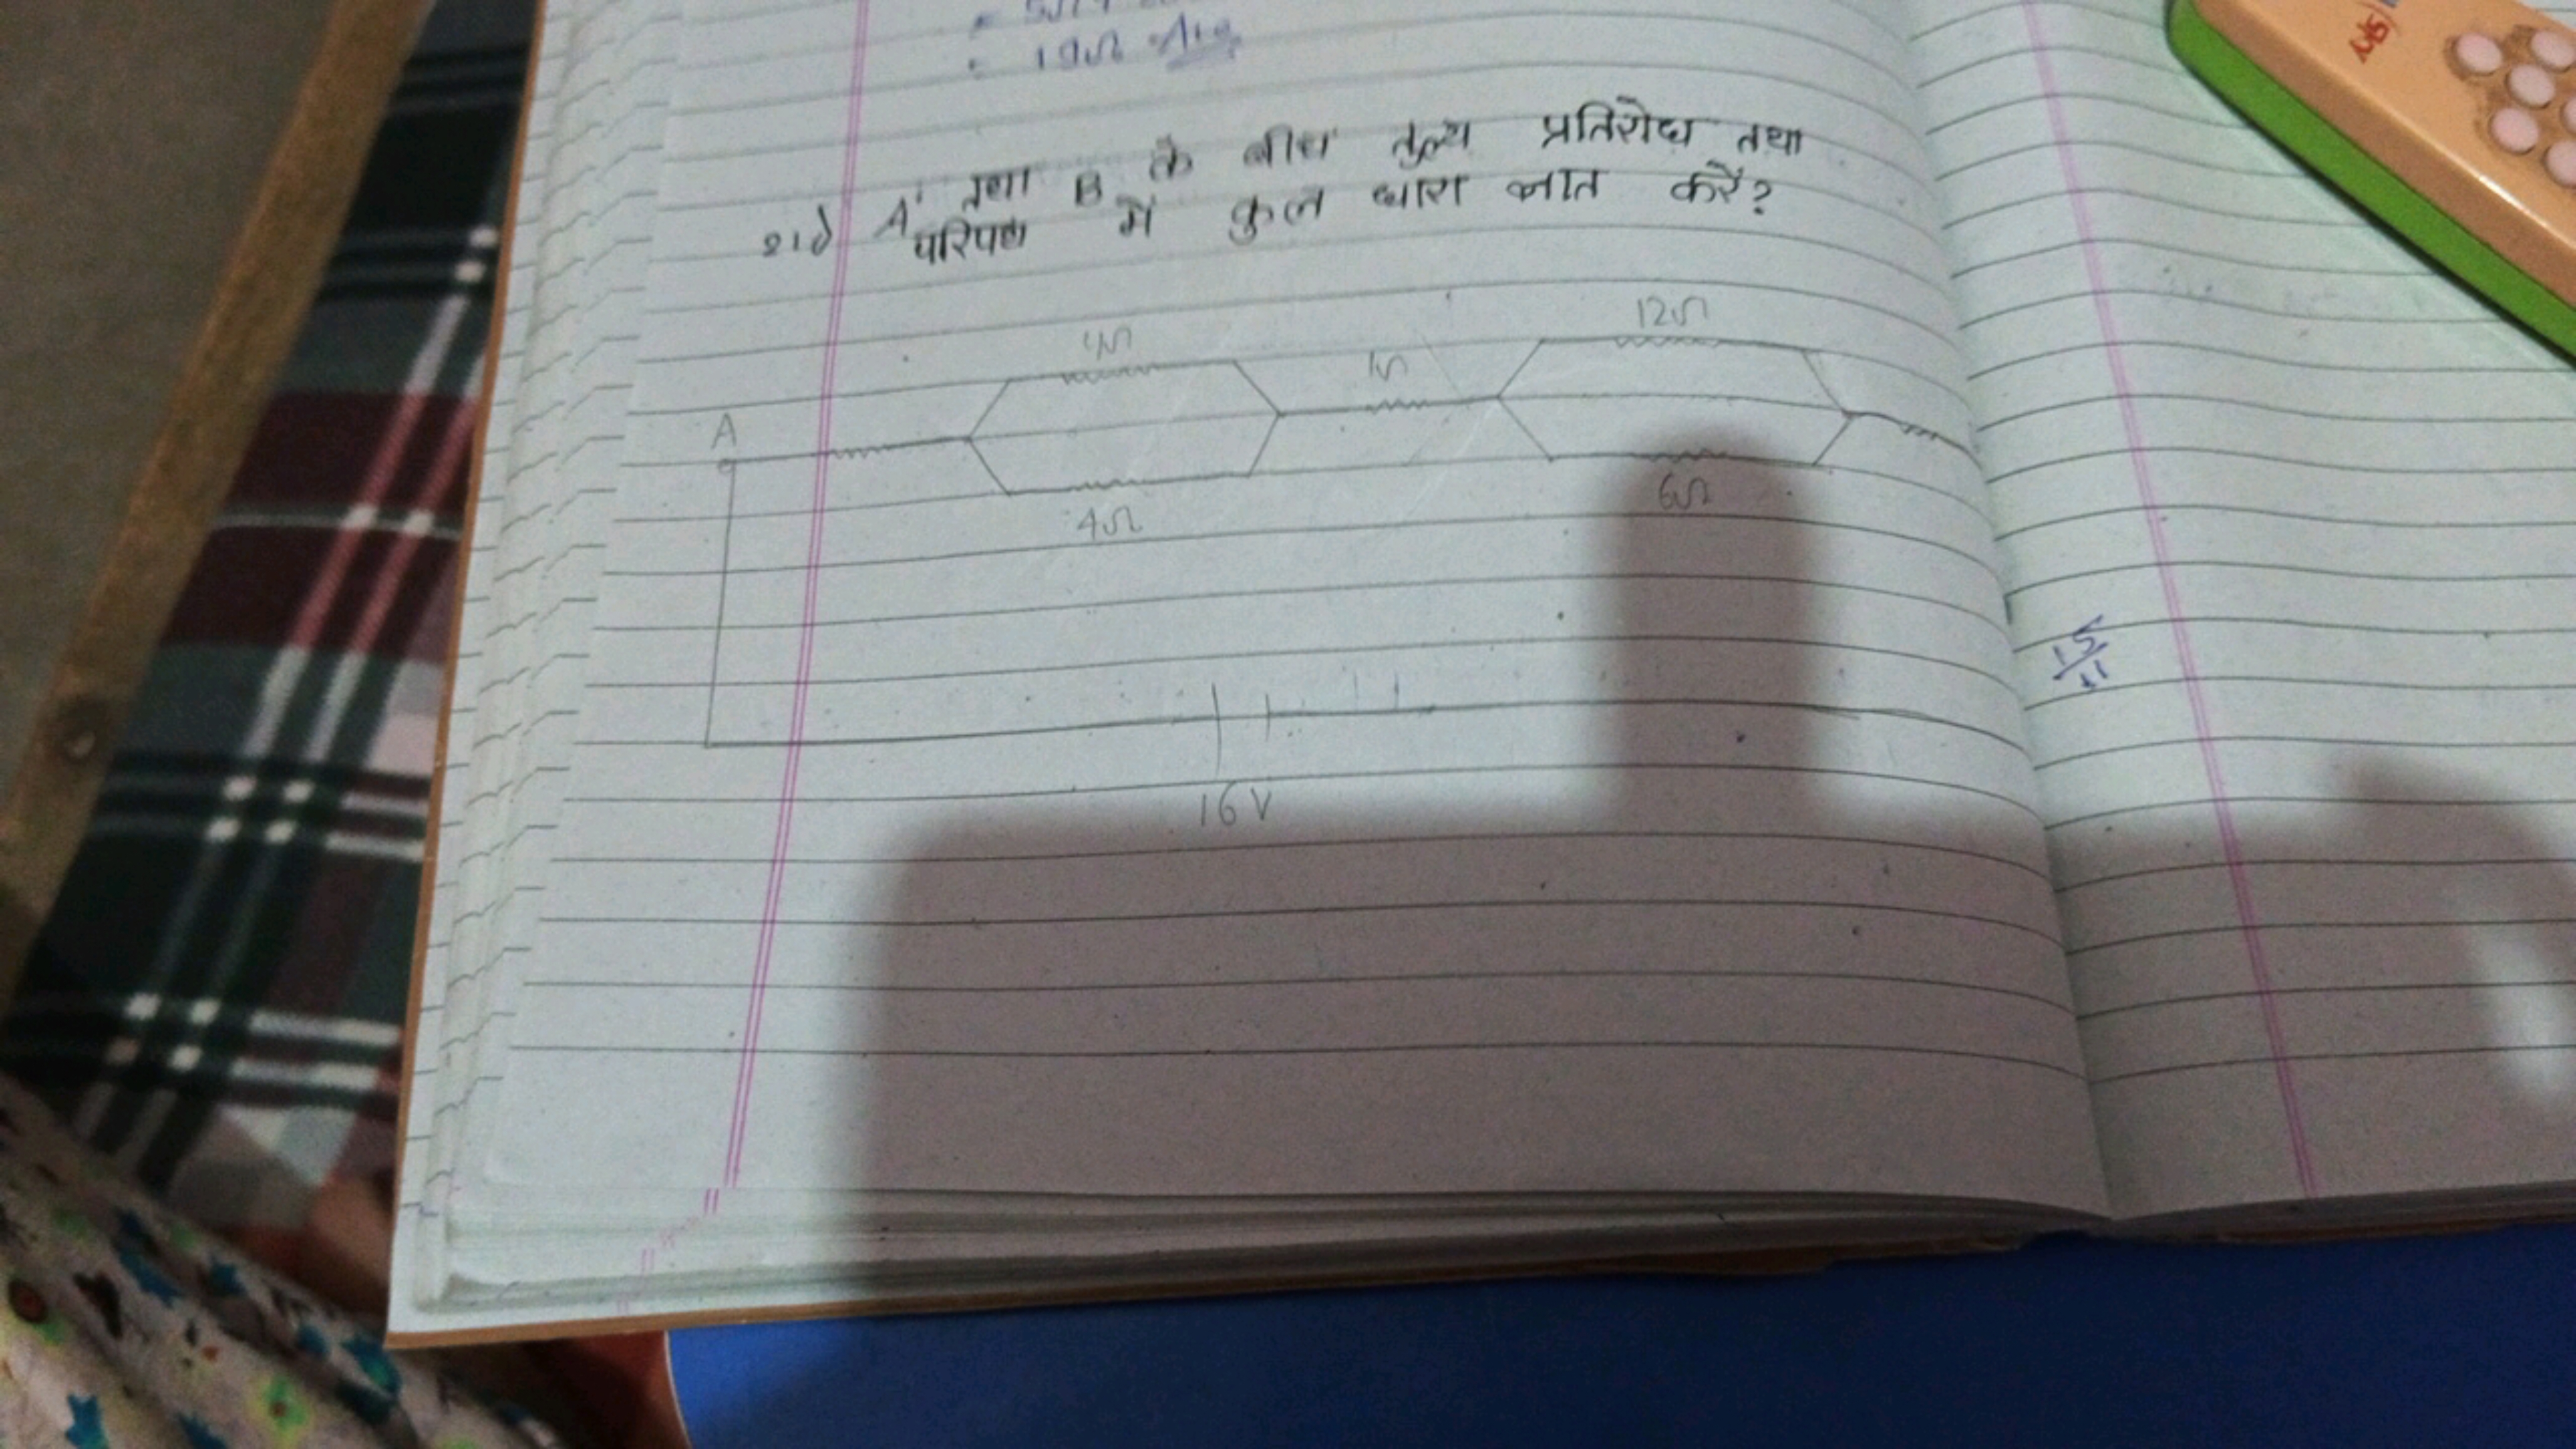 = 19Ω Ans
21) A तथा B के बीच तुल्य प्रतिरोध तथा
परिपथ में कुल धारा ज्ञात करें?
12Ω
4Ω
1Ω
A
6Ω
4Ω
16V
15/11